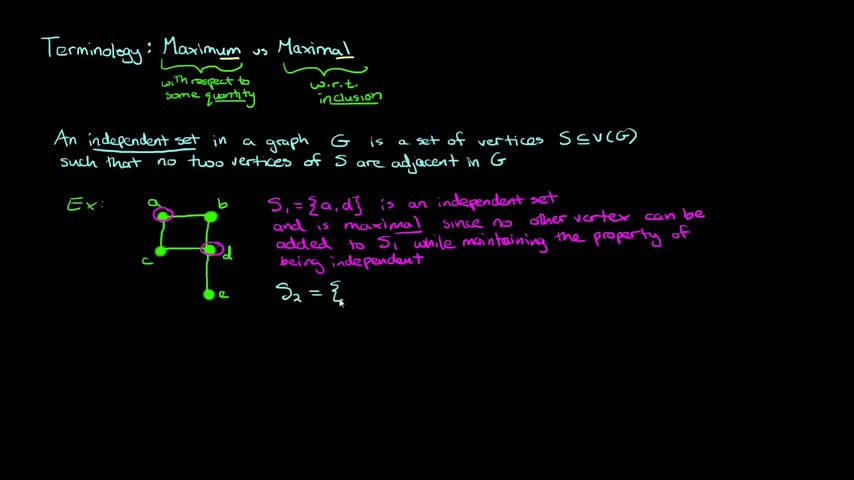 Terminology: Maximum vs Maximal
with respect to
some quantity
w.r.t.
inclusion
An independent set in a graph G is a set of vertices S⊆V(G)
such that no two vertices of S are adjacent in G
Ex:
a
b
c
d
e
S₁ = {a,d} is an independent set
and is maximal since no other vertex can be
added to S₁ while maintaining the property of
being independent
S₂ = {